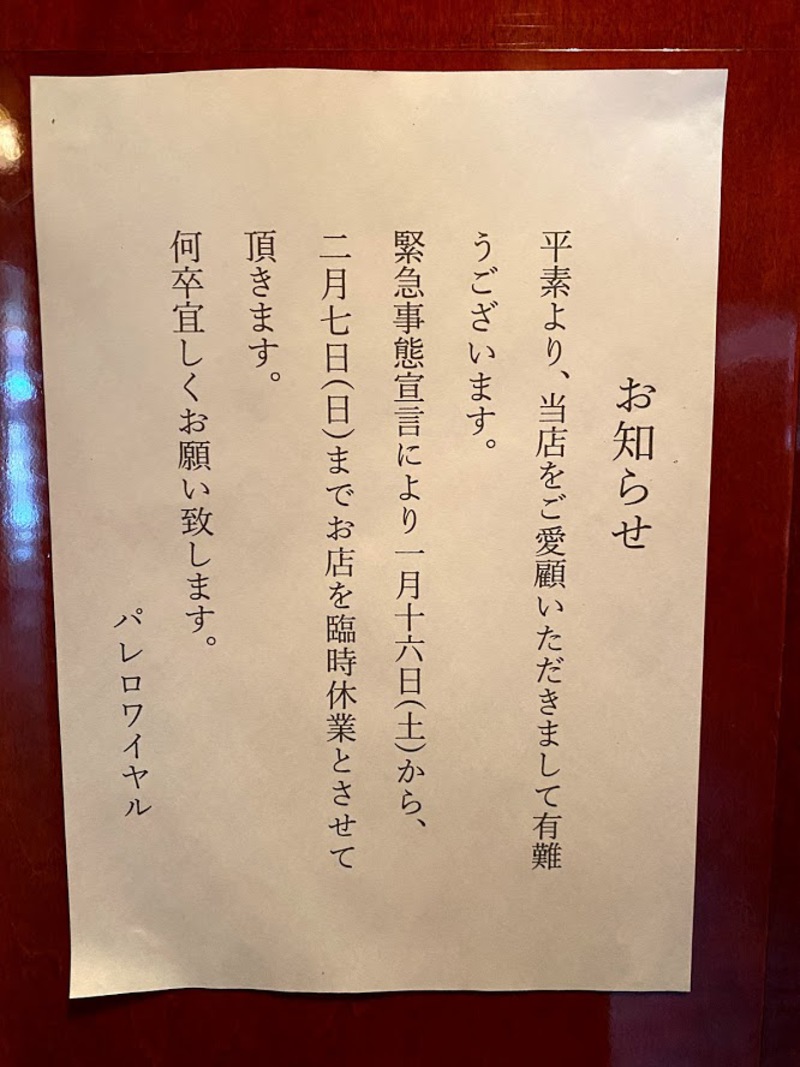 お知らせ
平素より、当店をご愛顧いただきまして有難
うございます。
緊急事態宣言により一月十六日(土)から、
二月七日(日)までお店を臨時休業とさせて
頂きます。
何卒宜しくお願い致します。
パレロワイヤル